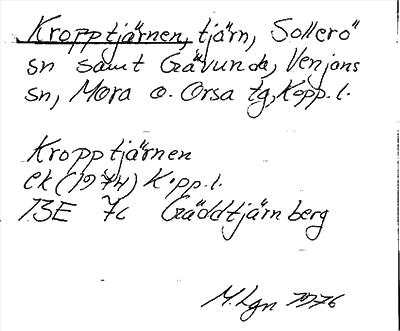 Kropptjärnen, tjärn, Sollerö
sn samt Gävunda, Venjans
sn, Mora o. Orsa tg, Kopp. l.
Kropptjärnen
ek (1974) Kopp. l.
13E 7c Gäddtjärnberg
M. Lgn 1976